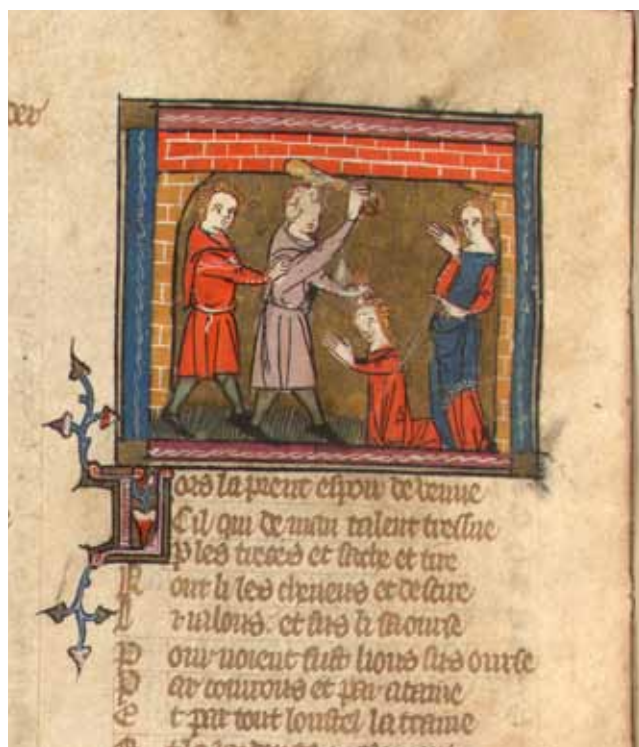 Lors la prent espoir de venue
Cil qui de mau talent tressue
P les treces et sache et tire
Ront li les cheveus et descire
Li ialous. et sus li saourse
Pour noient fust lions sus ourse
Par courous et par ataine
Et par tout loustel la traine